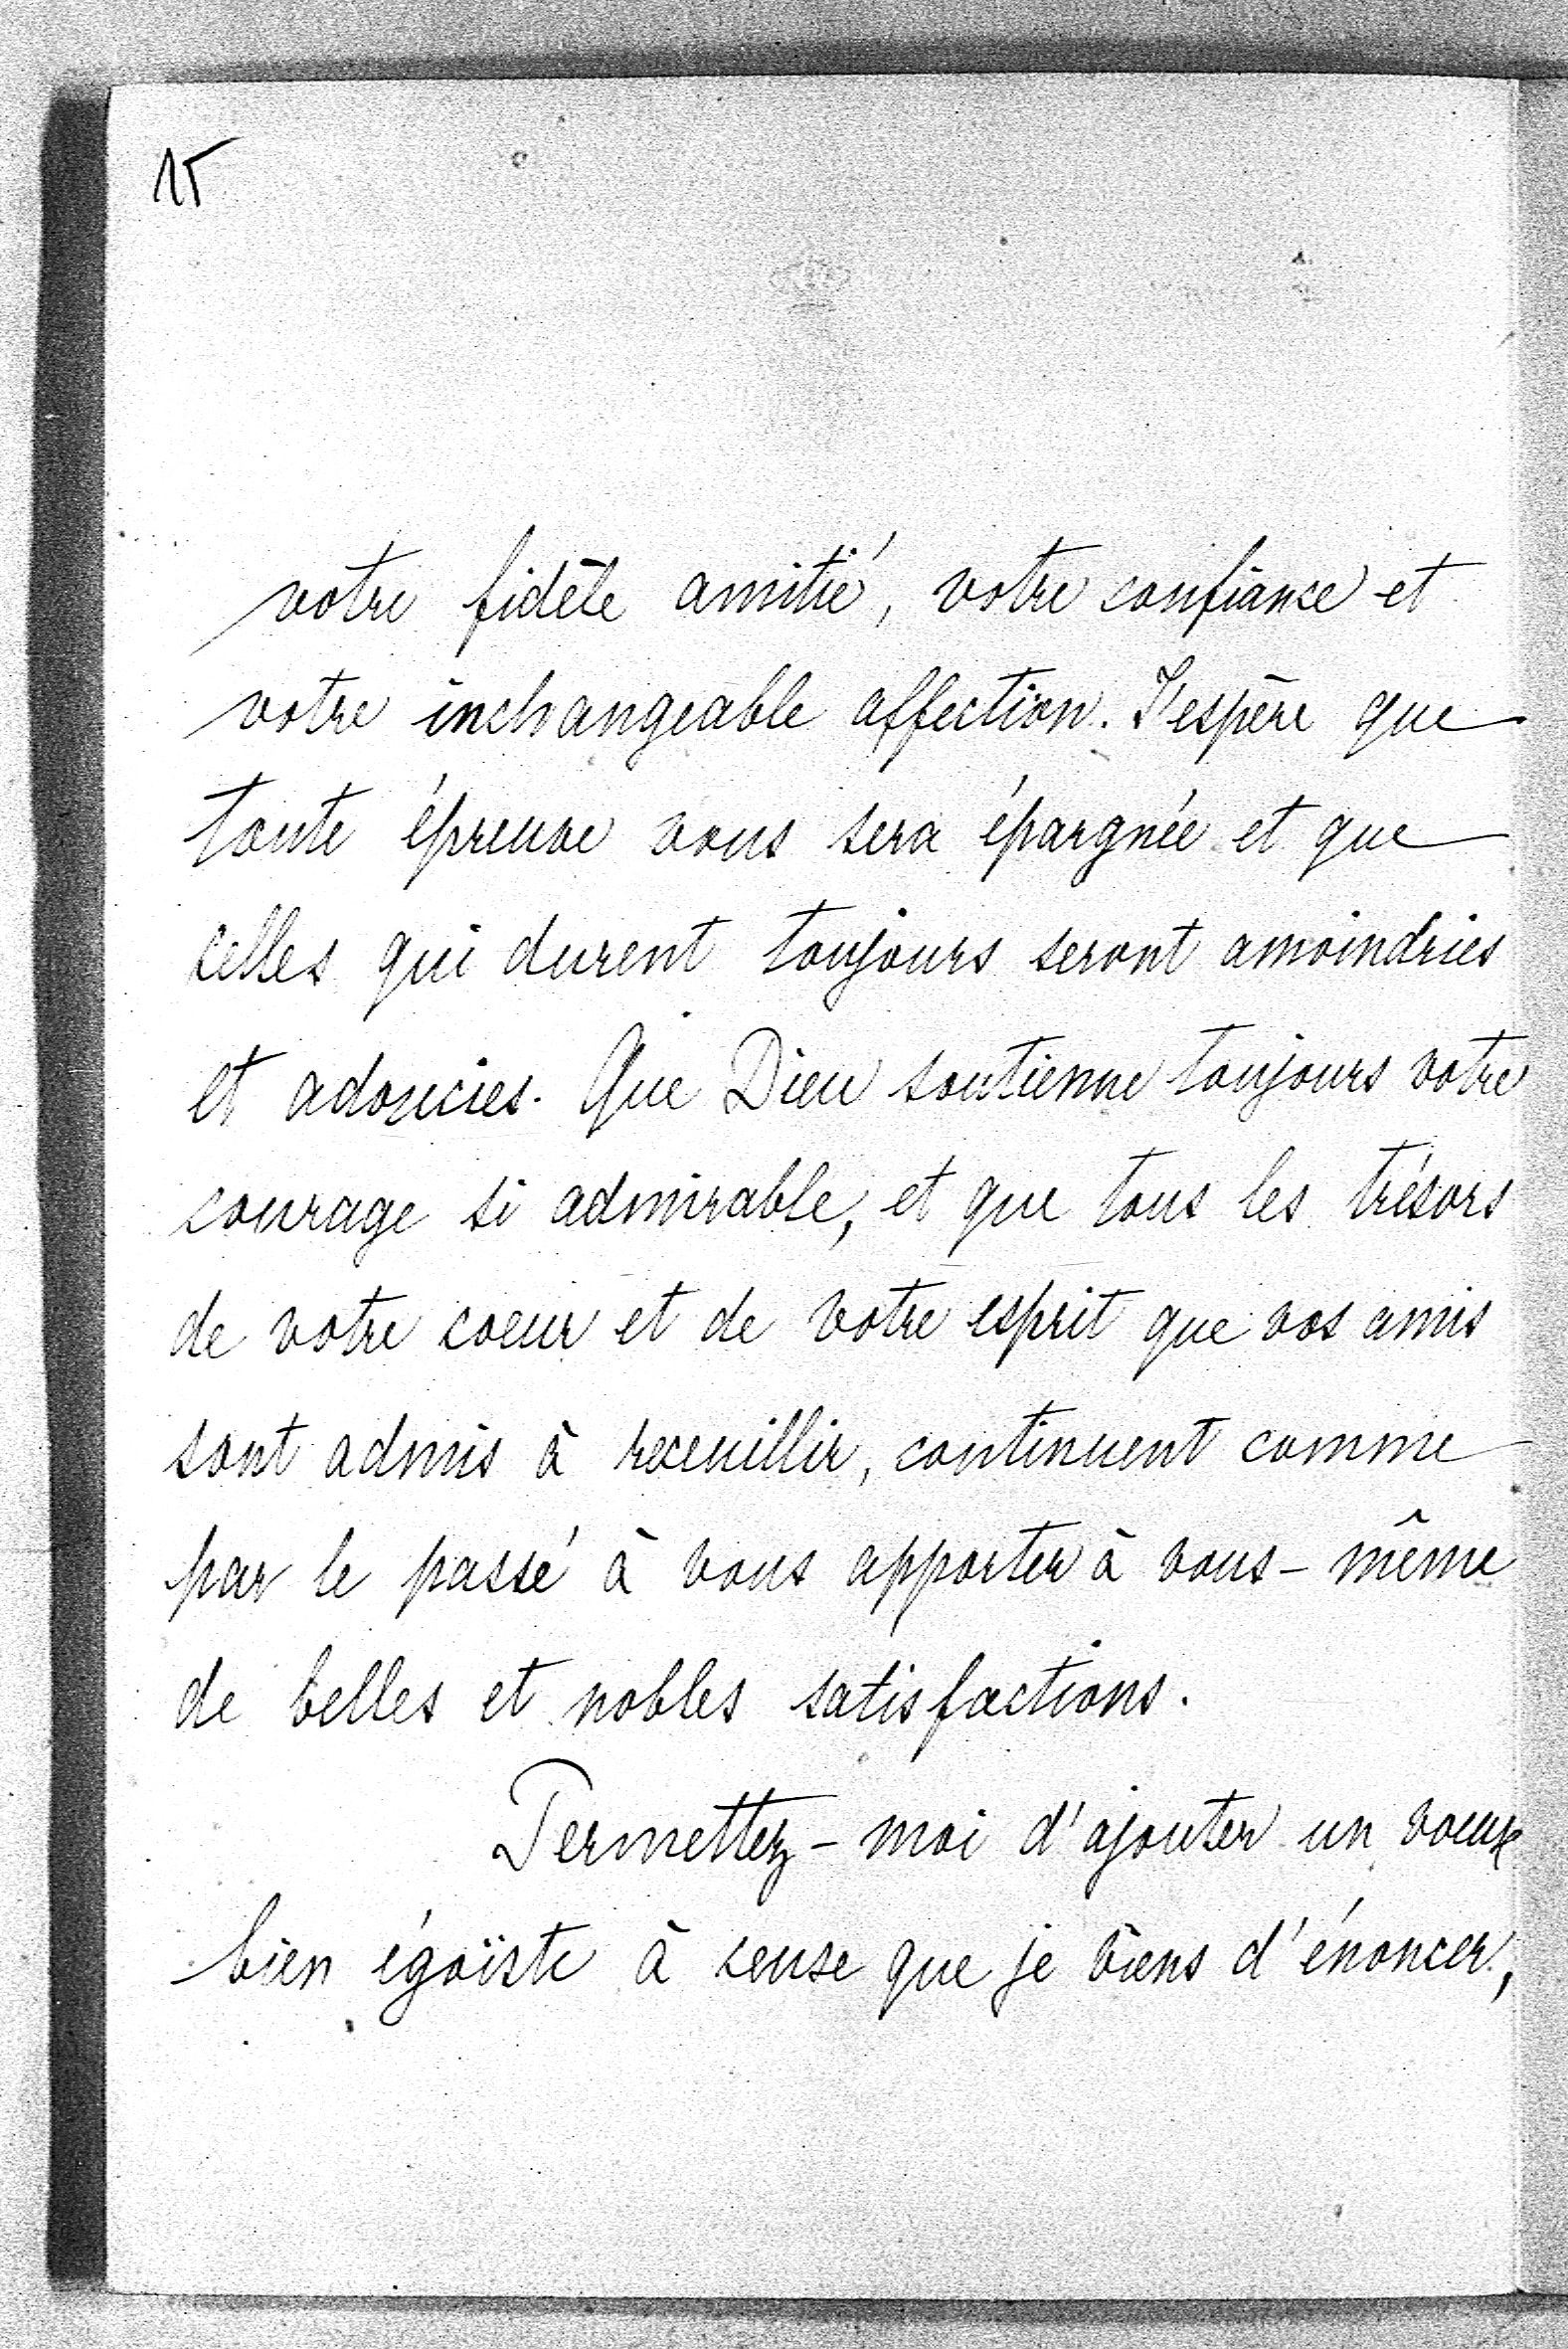 15
votre fidèle amitié, votre confiance et
votre inchangeable affection. J'espère que
toute épreuve vous sera épargnée et que
celles qui durent toujours seront amoindries
et adoucies. Que Dieu soutienne toujours votre
courage si admirable, et que tous les trésors
de votre coeur et de votre esprit que vos amis
sont admis à receuillir, continuent comme
par le passé à vous apporter à vous-même
de belles et nobles satisfactions.
Permettez-moi d'ajouter un voeux
bien égoïste à ceuse que je viens d'énoncer,